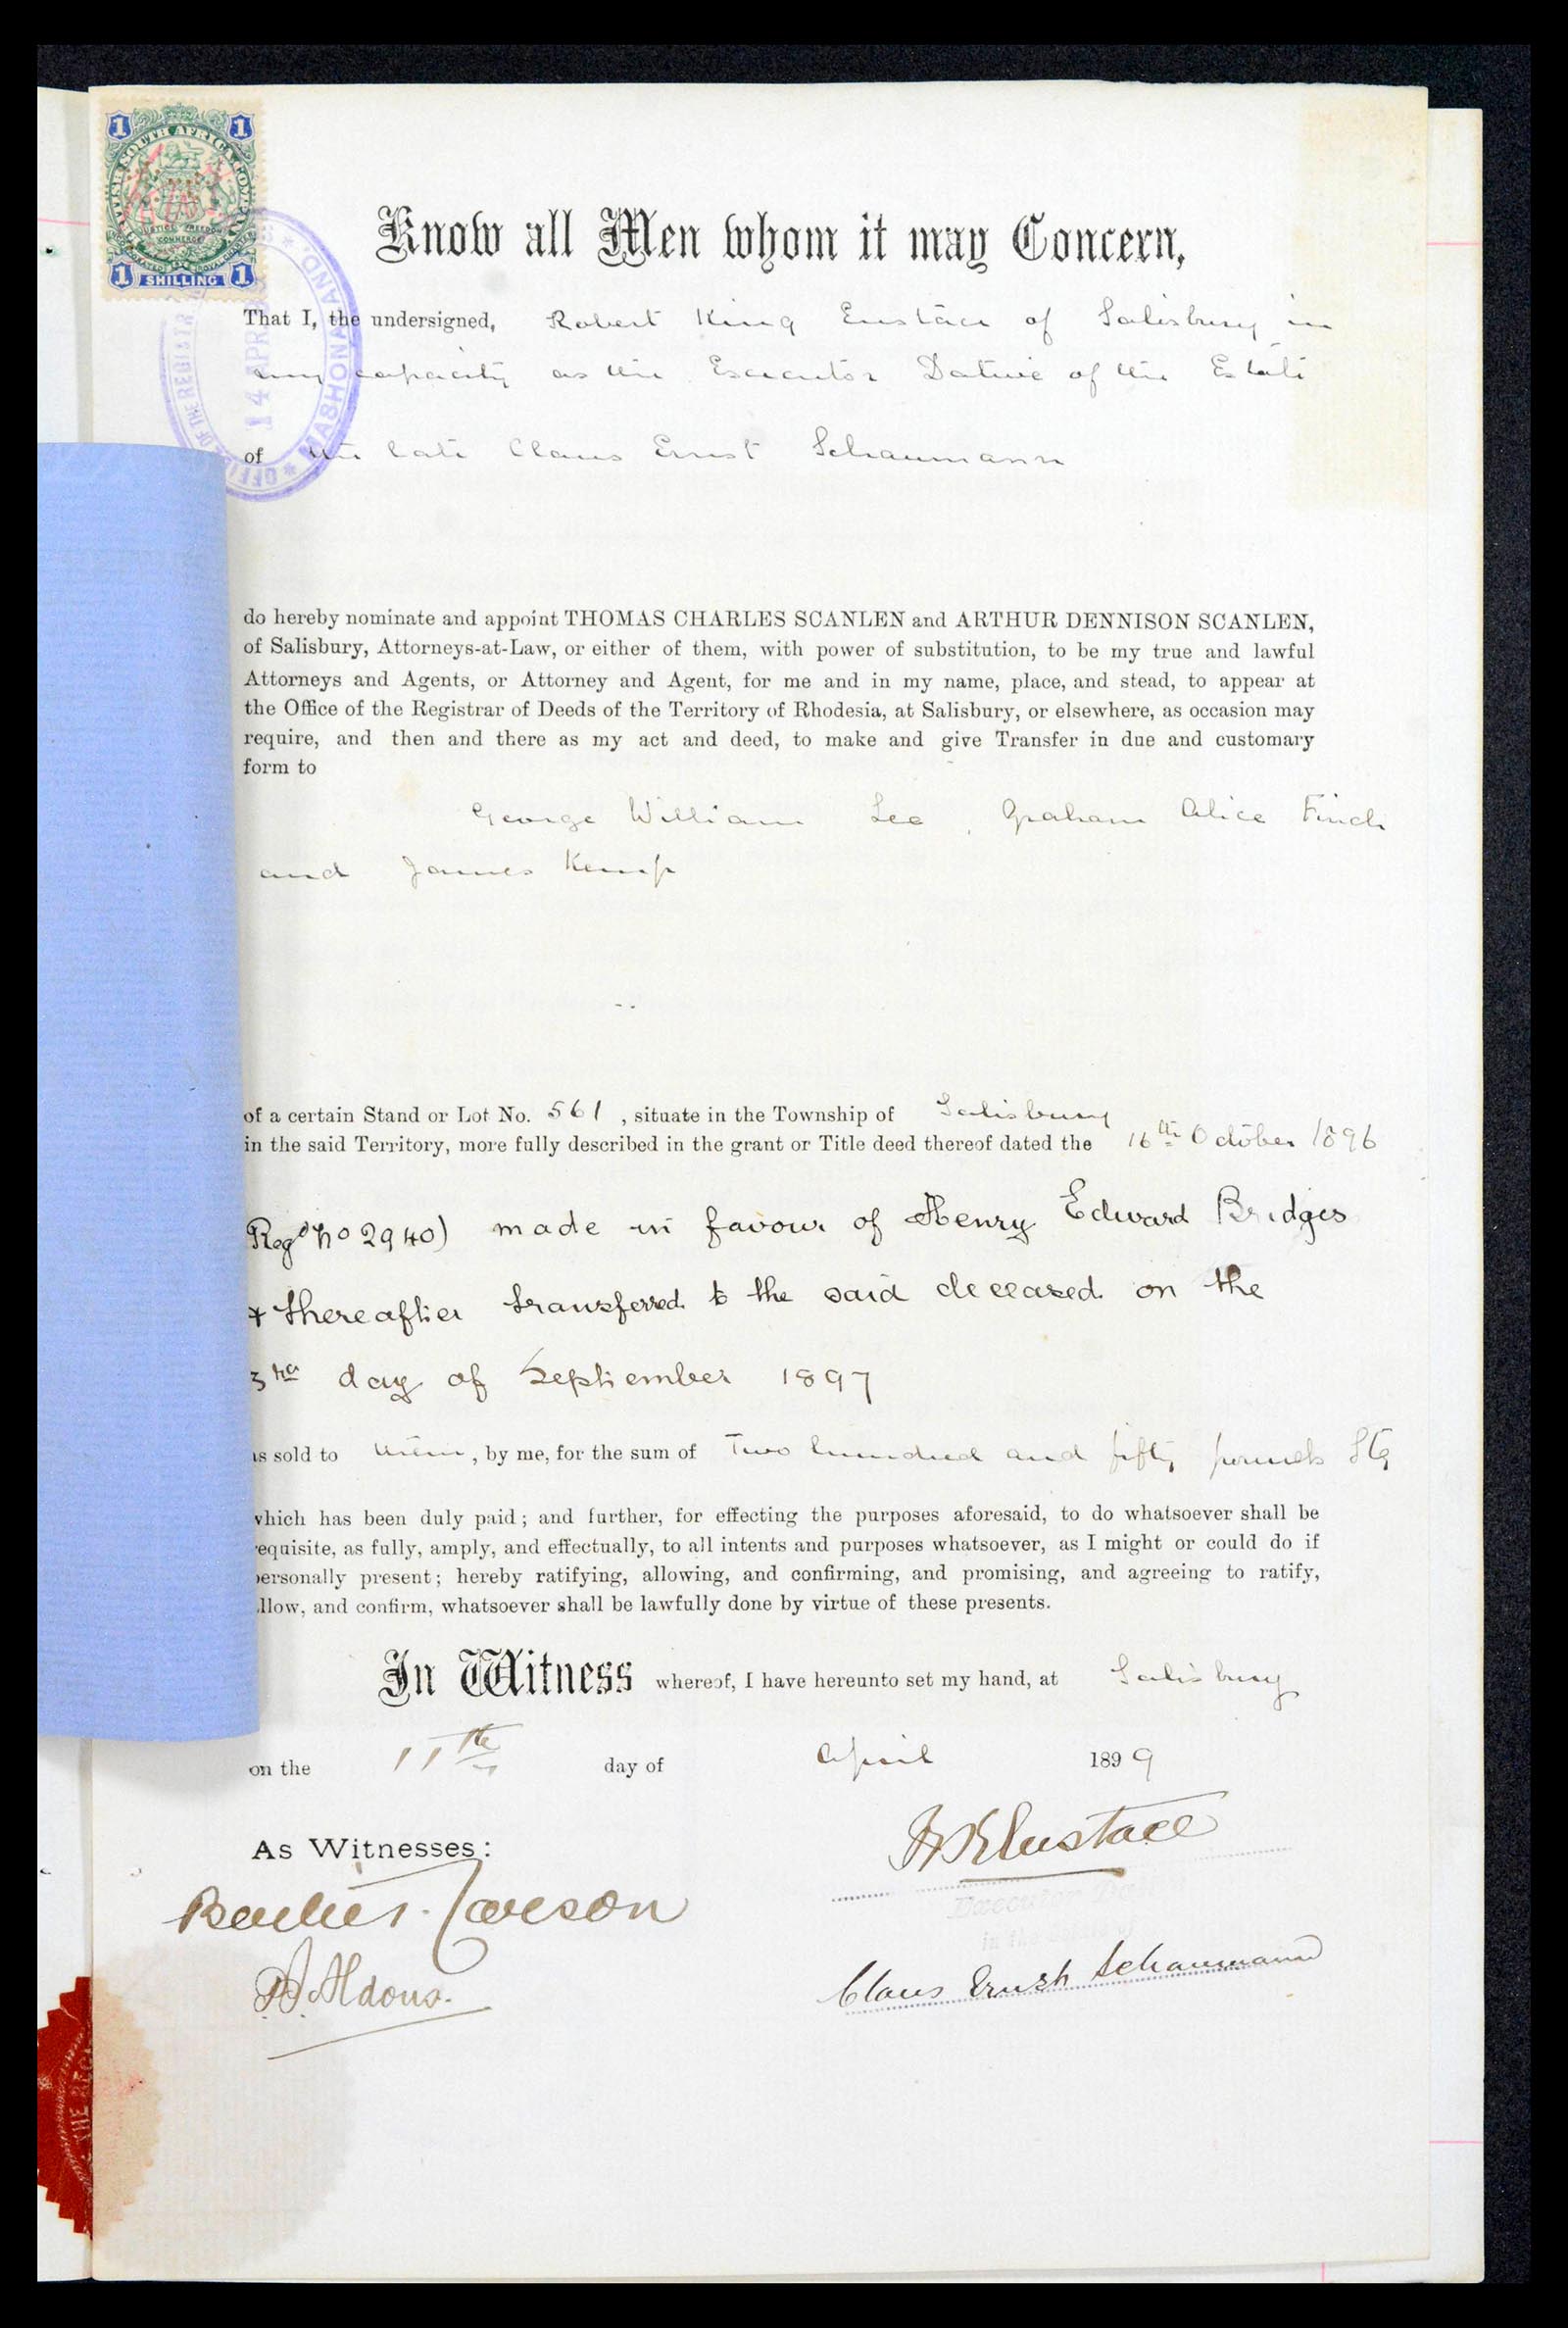 1 1
SOUTH AFRICA COM
JUSTICE FREEDOM
COMMERCE
1 SHILLING 1
OF THE REGISTR
14 APR
MASHONALAND.
Know all Men whom it may Concern,
That I, the undersigned, Robert King Eustace of Salisbury in
my capacity as the Executor Dative of the Estate
of the late Claus Ernst Schaumann
do hereby nominate and appoint THOMAS CHARLES SCANLEN and ARTHUR DENNISON SCANLEN,
of Salisbury, Attorneys-at-Law, or either of them, with power of substitution, to be my true and lawful
Attorneys and Agents, or Attorney and Agent, for me and in my name, place, and stead, to appear at
the Office of the Registrar of Deeds of the Territory of Rhodesia, at Salisbury, or elsewhere, as occasion may
require, and then and there as my act and deed, to make and give Transfer in due and customary
form to
George William Lee, Graham Alice Finch
and James Kemp
of a certain Stand or Lot No. 561, situate in the Township of Salisbury
in the said Territory, more fully described in the grant or Title deed thereof dated the 16th October 1896
Regd No 2940) made in favour of Henry Edward Bridges
& thereafter transferred to the said deceased on the
3rd day of September 1897
as sold to them, by me, for the sum of Two hundred and fifty pounds Stg
which has been duly paid; and further, for effecting the purposes aforesaid, to do whatsoever shall be
requisite, as fully, amply, and effectually, to all intents and purposes whatsoever, as I might or could do if
personally present; hereby ratifying, allowing, and confirming, and promising, and agreeing to ratify,
allow, and confirm, whatsoever shall be lawfully done by virtue of these presents.
In Witness whereof, I have hereunto set my hand, at Salisbury
on the 11th day of April 1899
As Witnesses:
R K Eustace
Executor Dative
Carson
in the
Aldous.
Claus Ernst Schaumann
THE REG